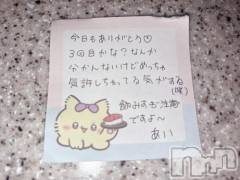 今日もありがとう♡
3回目かな?なんか
分かんないけどめっちゃ
気許しちゃってる気がする
(笑)
飲みすぎ注意
ですよ〜
あい